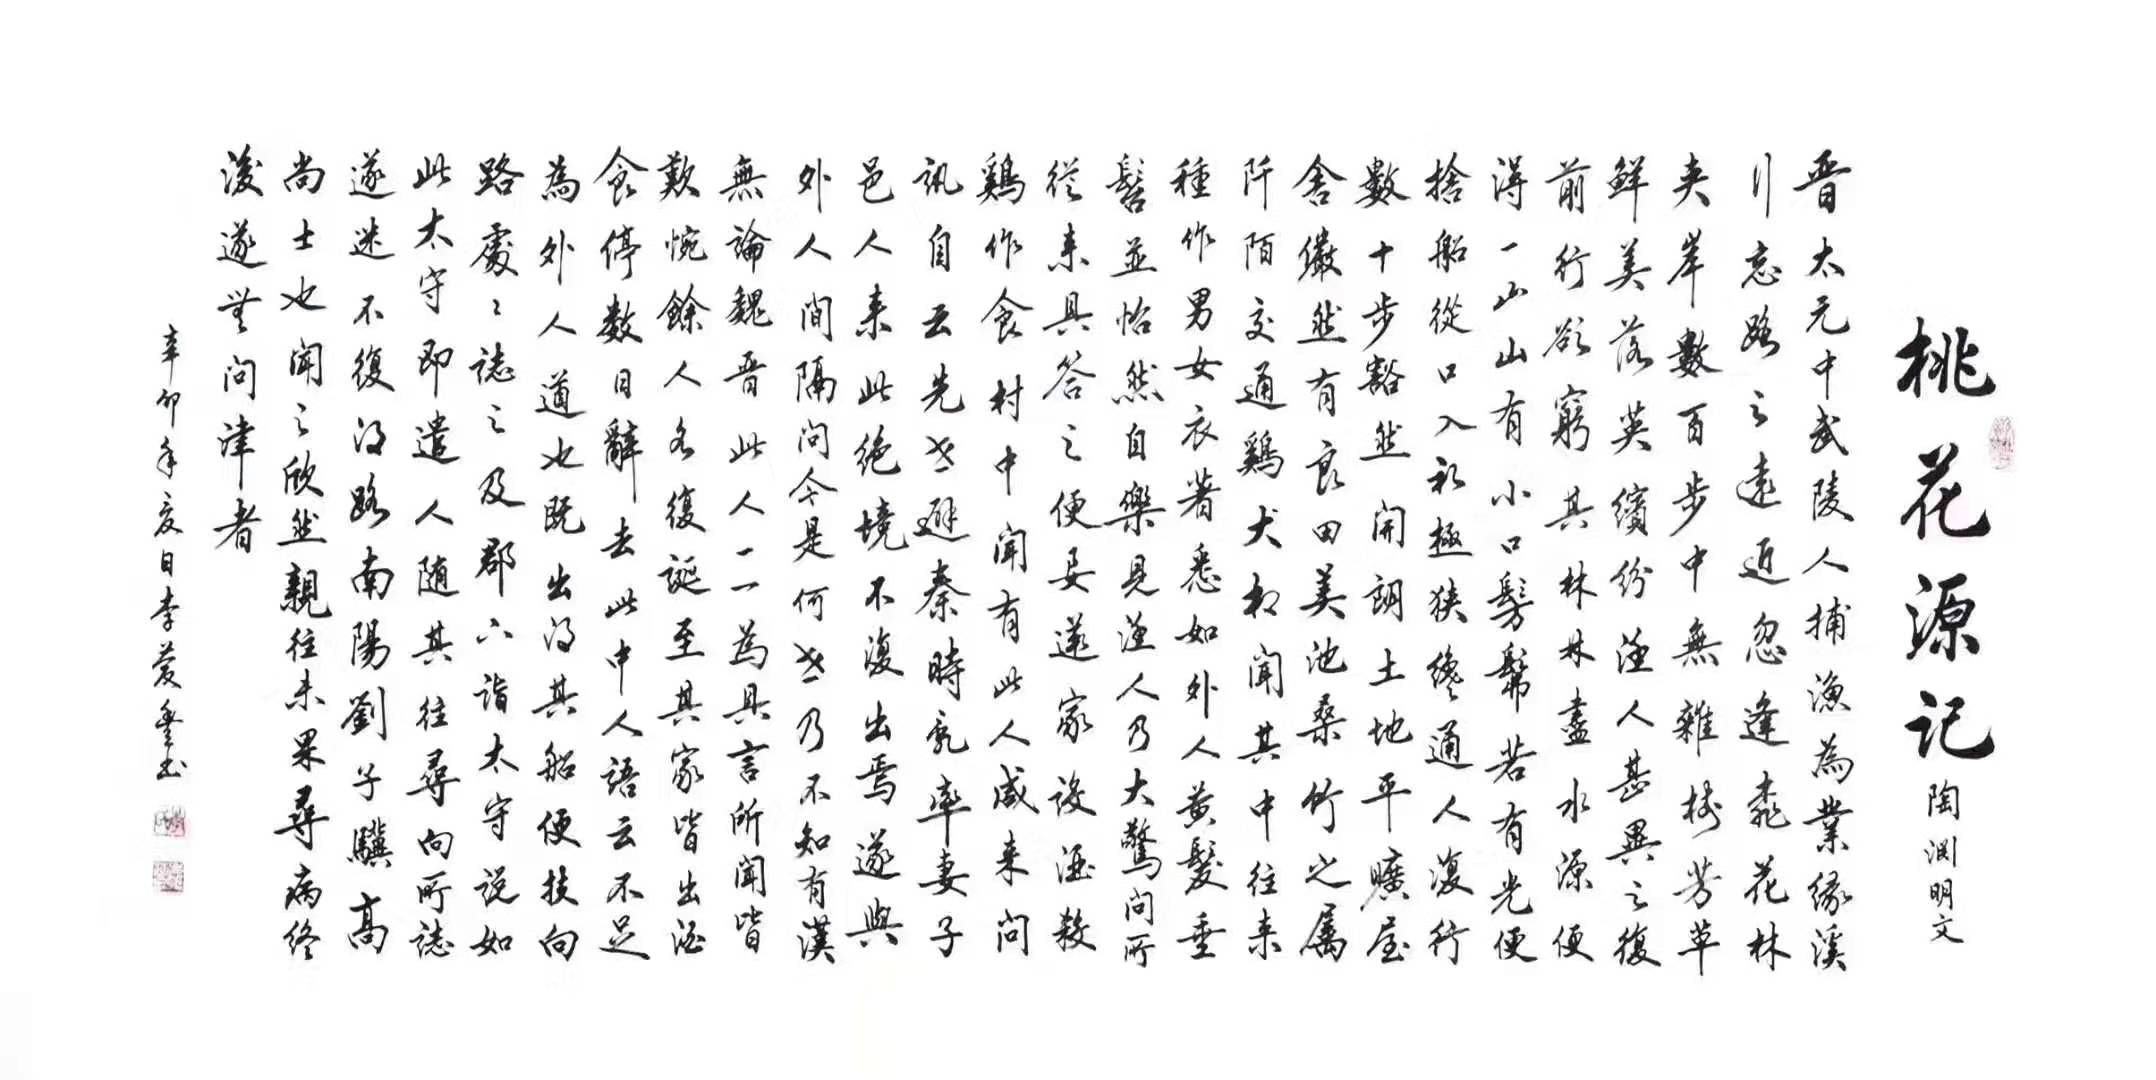 桃花源记 陶渊明文
晋太元中武陵人捕渔為業缘溪
行忘路之遠近忽逢桃花林
夹岸數百步中無雜樹芳草
鲜美落英缤纷渔人甚異之復
前行欲窮其林林盡水源便
得一山山有小口髣髴若有光便
捨船從口入初極狭纔通人復行
數十步豁然開朗土地平曠屋
舍儼然有良田美池桑竹之属
阡陌交通鷄犬相聞其中往来
種作男女衣著悉如外人黄髮垂
髫並怡然自樂見渔人乃大驚问所
從来具答之便要還家设酒殺
鷄作食村中聞有此人咸来问
訊自云先世避秦時亂率妻子
邑人来此绝境不復出焉遂與
外人間隔问今是何世乃不知有漢
無論魏晋此人一一為具言所聞皆
歎惋餘人各復誕至其家皆出酒
食停数日辭去此中人語云不足
為外人道也既出得其船便扶向
路處〻誌之及郡下詣太守说如
此太守即遣人随其往尋向所誌
遂迷不復得路南陽劉子驥高
尚士也聞之欣然親往未果尋病终
後遂無问津者
辛卯年夏日李爱书